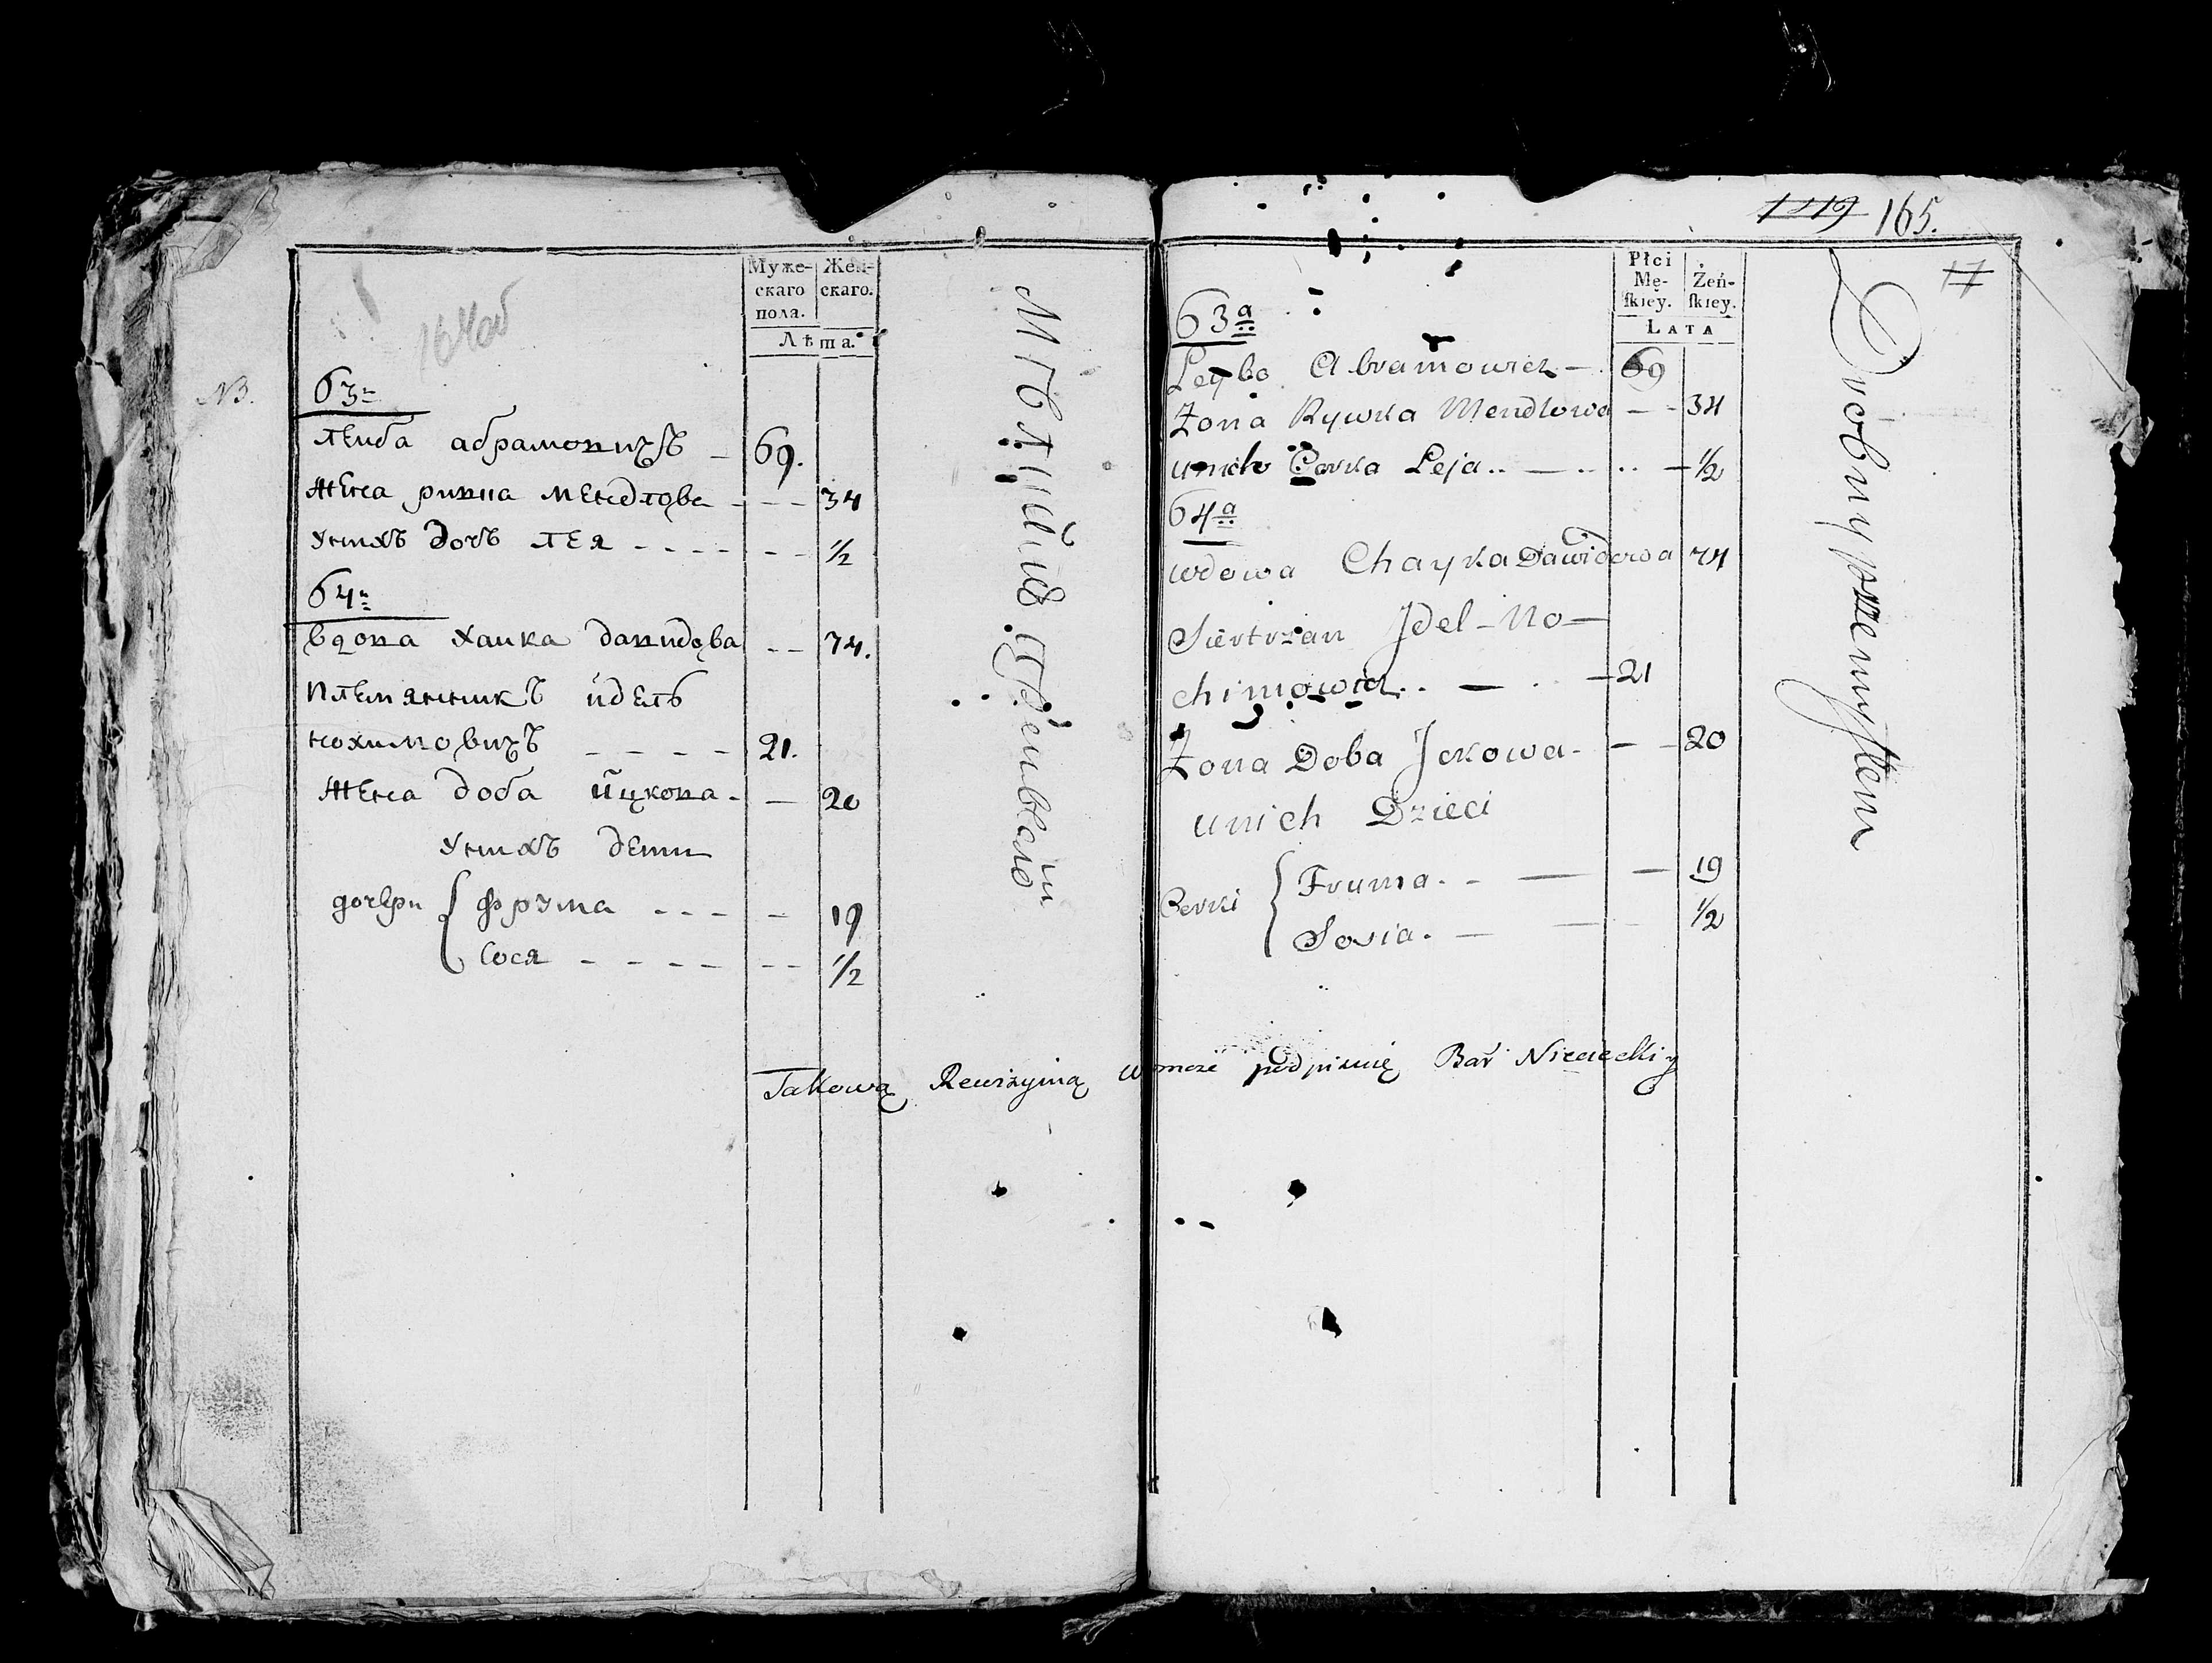 164об
NB.
Муже-
скаго
пола.
Жен-
скаго.
Лѣта.
63
леиба абрамовичъ 69.
жена ривка менделова 34
унихъ дочь лея 1/2
64
вдова хаика давидова 74.
племянникъ идель
нохимовичъ 21.
жена доба ицкова 20
унихъ дети
дочери { фрума 19
сося 1/2
1119 165.
17
Płci
Mę-
ſkiey.
Żeń-
ſkiey.
LATA
63a
Leybo Abramowicz 69
Żona Rywka Mendlowa 34
unich Corka Leja 1/2
64a
wdowa Chayka Dawidowa 74
Siestrzan Jdel No-
chimowicz 21
Żona Doba Jckowa 20
unich Dzieci
Corki { Fruma 19
Sosia 1/2
Takową Rewizyiną